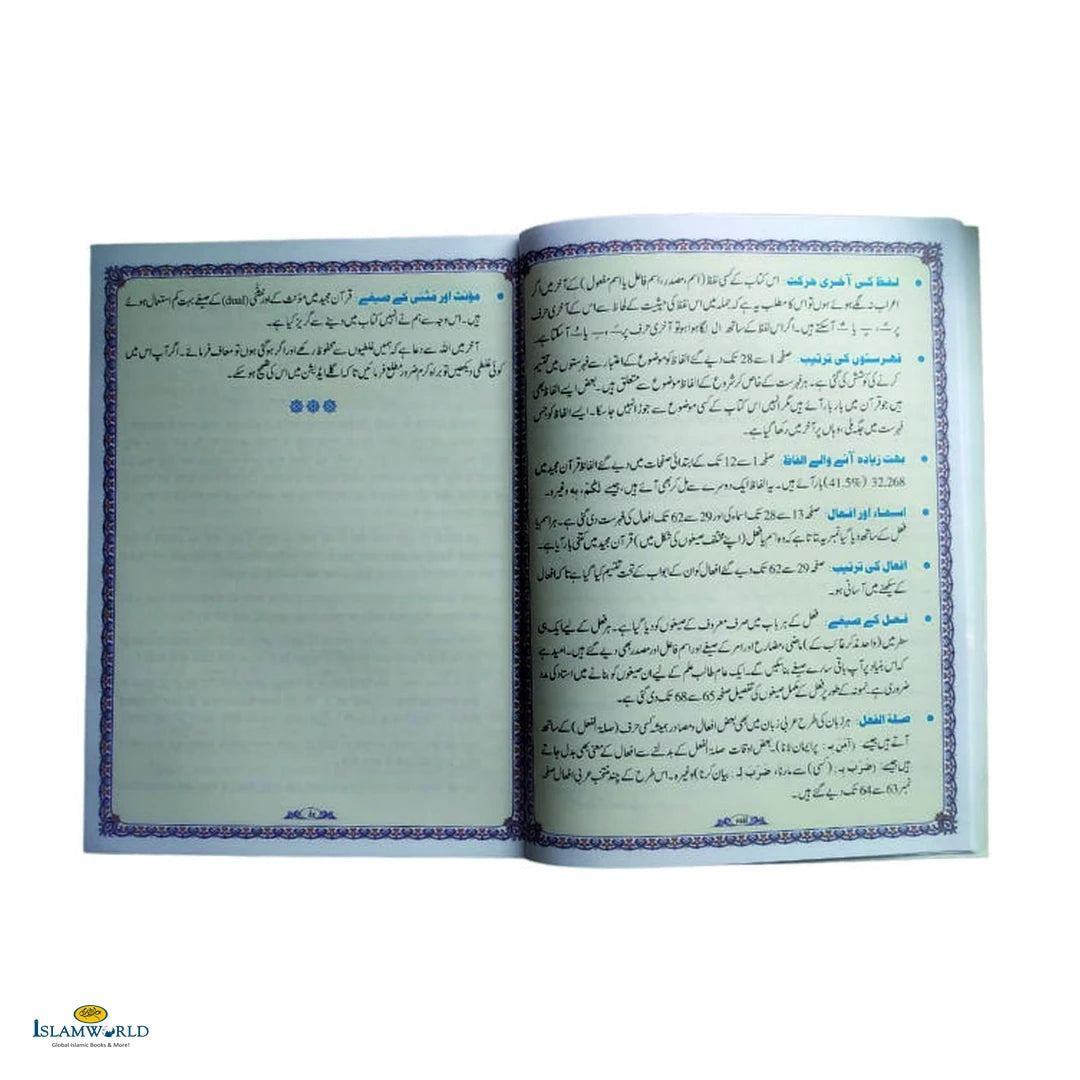 لفظ کی آخری حرکت: اس کتاب کے کسی لفظ (اسم، مصدر، اسم فاعل یا اسم مفعول) کے آخر میں اگر
اعراب نہ لگے ہوئے ہوں تو اس کا مطلب یہ ہے کہ جملہ میں اس لفظ کی حیثیت کے لحاظ سے اس کے آخری حرف
پر آسکتے ہیں۔ اگر اس لفظ کے ساتھ ال لگا ہوا ہو تو آخری حرف پر یا آسکتا ہے۔
فہرستوں کی ترتیب: صفحہ 1 سے 28 تک دیے گئے الفاظ کو موضوع کے اعتبار سے فہرستوں میں تقسیم
کرنے کی کوشش کی گئی ہے۔ ہر فہرست کے خاص کر شروع کے الفاظ موضوع سے متعلق ہیں۔ بعض ایسے الفاظ بھی
ہیں جو قرآن میں بار بار آئے ہیں مگر انہیں اس کتاب کے کسی موضوع سے جوڑا نہیں جا سکا۔ ایسے الفاظ کو جس
فہرست میں جگہ ملی، وہاں پر آخر میں رکھا گیا ہے۔
بہت زیادہ آنے والے الفاظ: صفحہ 1 سے 12 تک کے ابتدائی صفحات میں دیے گئے الفاظ قرآن مجید میں
32,268 (41.5%) بار آئے ہیں۔ یہ الفاظ ایک دوسرے سے مل کر بھی آئے ہیں، جیسے لَكُمْ، بِهٖ وغیرہ۔
اسماء اور افعال: صفحہ 13 سے 28 تک اسماء کی اور 29 سے 62 تک افعال کی فہرست دی گئی ہے۔ ہر اسم یا
فعل کے ساتھ دیا گیا نمبر یہ بتاتا ہے کہ وہ اسم یا فعل (اپنے مختلف صیغوں کی شکل میں) قرآن مجید میں کتنی بار آیا ہے۔
افعال کی ترتیب: صفحہ 29 سے 62 تک دیے گئے افعال کو ان کے ابواب کے تحت تقسیم کیا گیا ہے تاکہ افعال
کے سیکھنے میں آسانی ہو۔
فعل کے صیغے: فعل کے ہر باب میں صرف معروف کے صیغوں کو دیا گیا ہے۔ ہر فعل کے لیے ایک ہی
سطر میں (واحد مذکر غائب کے) ماضی، مضارع اور امر کے صیغے اور اسم فاعل اور مصدر بھی دیے گئے ہیں۔ امید ہے
کہ اس بنیاد پر آپ باقی سارے صیغے بنا سکیں گے۔ ایک عام طالب علم کے لیے ان صیغوں کو بنانے میں استاد کی مدد
ضروری ہے۔ نمونہ کے طور پر فعل کے مکمل صیغوں کی تفصیل صفحہ 65 سے 68 تک دی گئی ہے۔
صلۃ الفعل: ہر زبان کی طرح عربی زبان میں بھی بعض افعال و مصادر ہمیشہ کسی حرف (صلۃ الفعل) کے ساتھ
آتے ہیں جیسے: (آمَنَ بِـ : پر ایمان لانا)۔ بعض اوقات صلۃ الفعل کے بدلنے سے افعال کے معنی بھی بدل جاتے
ہیں جیسے: (ضَرَبَ بِـ : (کسی) سے مارنا، ضَرَبَ لِـ : بیان کرنا) وغیرہ۔ اس طرح کے چند منتخب عربی افعال صفحہ
نمبر 63 سے 64 تک دیے گئے ہیں۔
viii
مؤنث اور مثنّٰی کے صیغے: قرآن مجید میں مؤنث کے اور مثنّٰی (dual) کے صیغے بہت کم استعمال ہوئے
ہیں۔ اس وجہ سے ہم نے انہیں کتاب میں دینے سے گریز کیا ہے۔
آخر میں اللہ سے دعا ہے کہ ہمیں غلطیوں سے محفوظ رکھے اور اگر ہو گئی ہوں تو معاف فرمائے۔ اگر آپ اس میں
کوئی غلطی دیکھیں تو براہ کرم ضرور مطلع فرمائیں تاکہ اگلے ایڈیشن میں اس کی تصحیح ہو سکے۔
ix
ISLAMWORLD
Global Islamic Books & More!